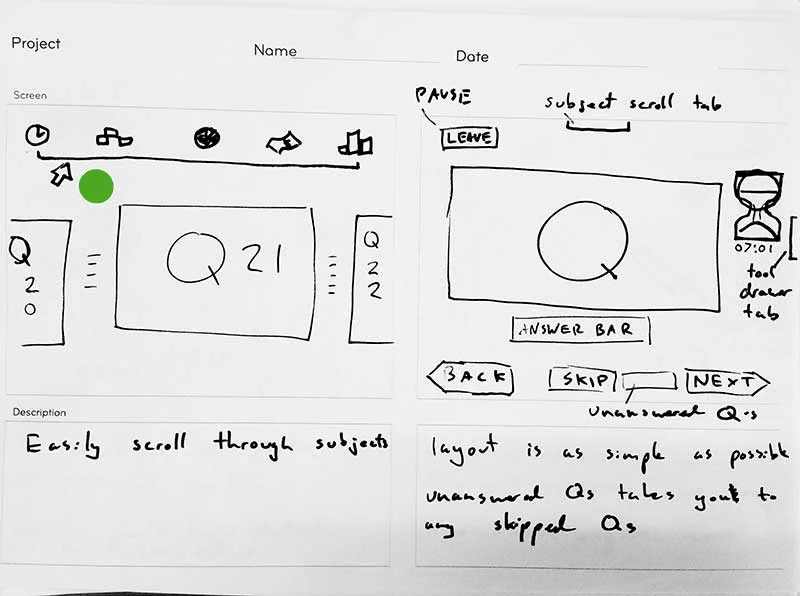 Project
Name
Date
Screen
PAUSE
subject scroll tab
LEAVE
Q
2
0
Q 21
Q
2
2
Q
07:01
tool
drawer
tab
ANSWER BAR
BACK
SKIP
NEXT
unanswered Q-s
Description
Easily scroll through subjects
layout is as simple as possible
unanswered Qs takes you to
any skipped Qs